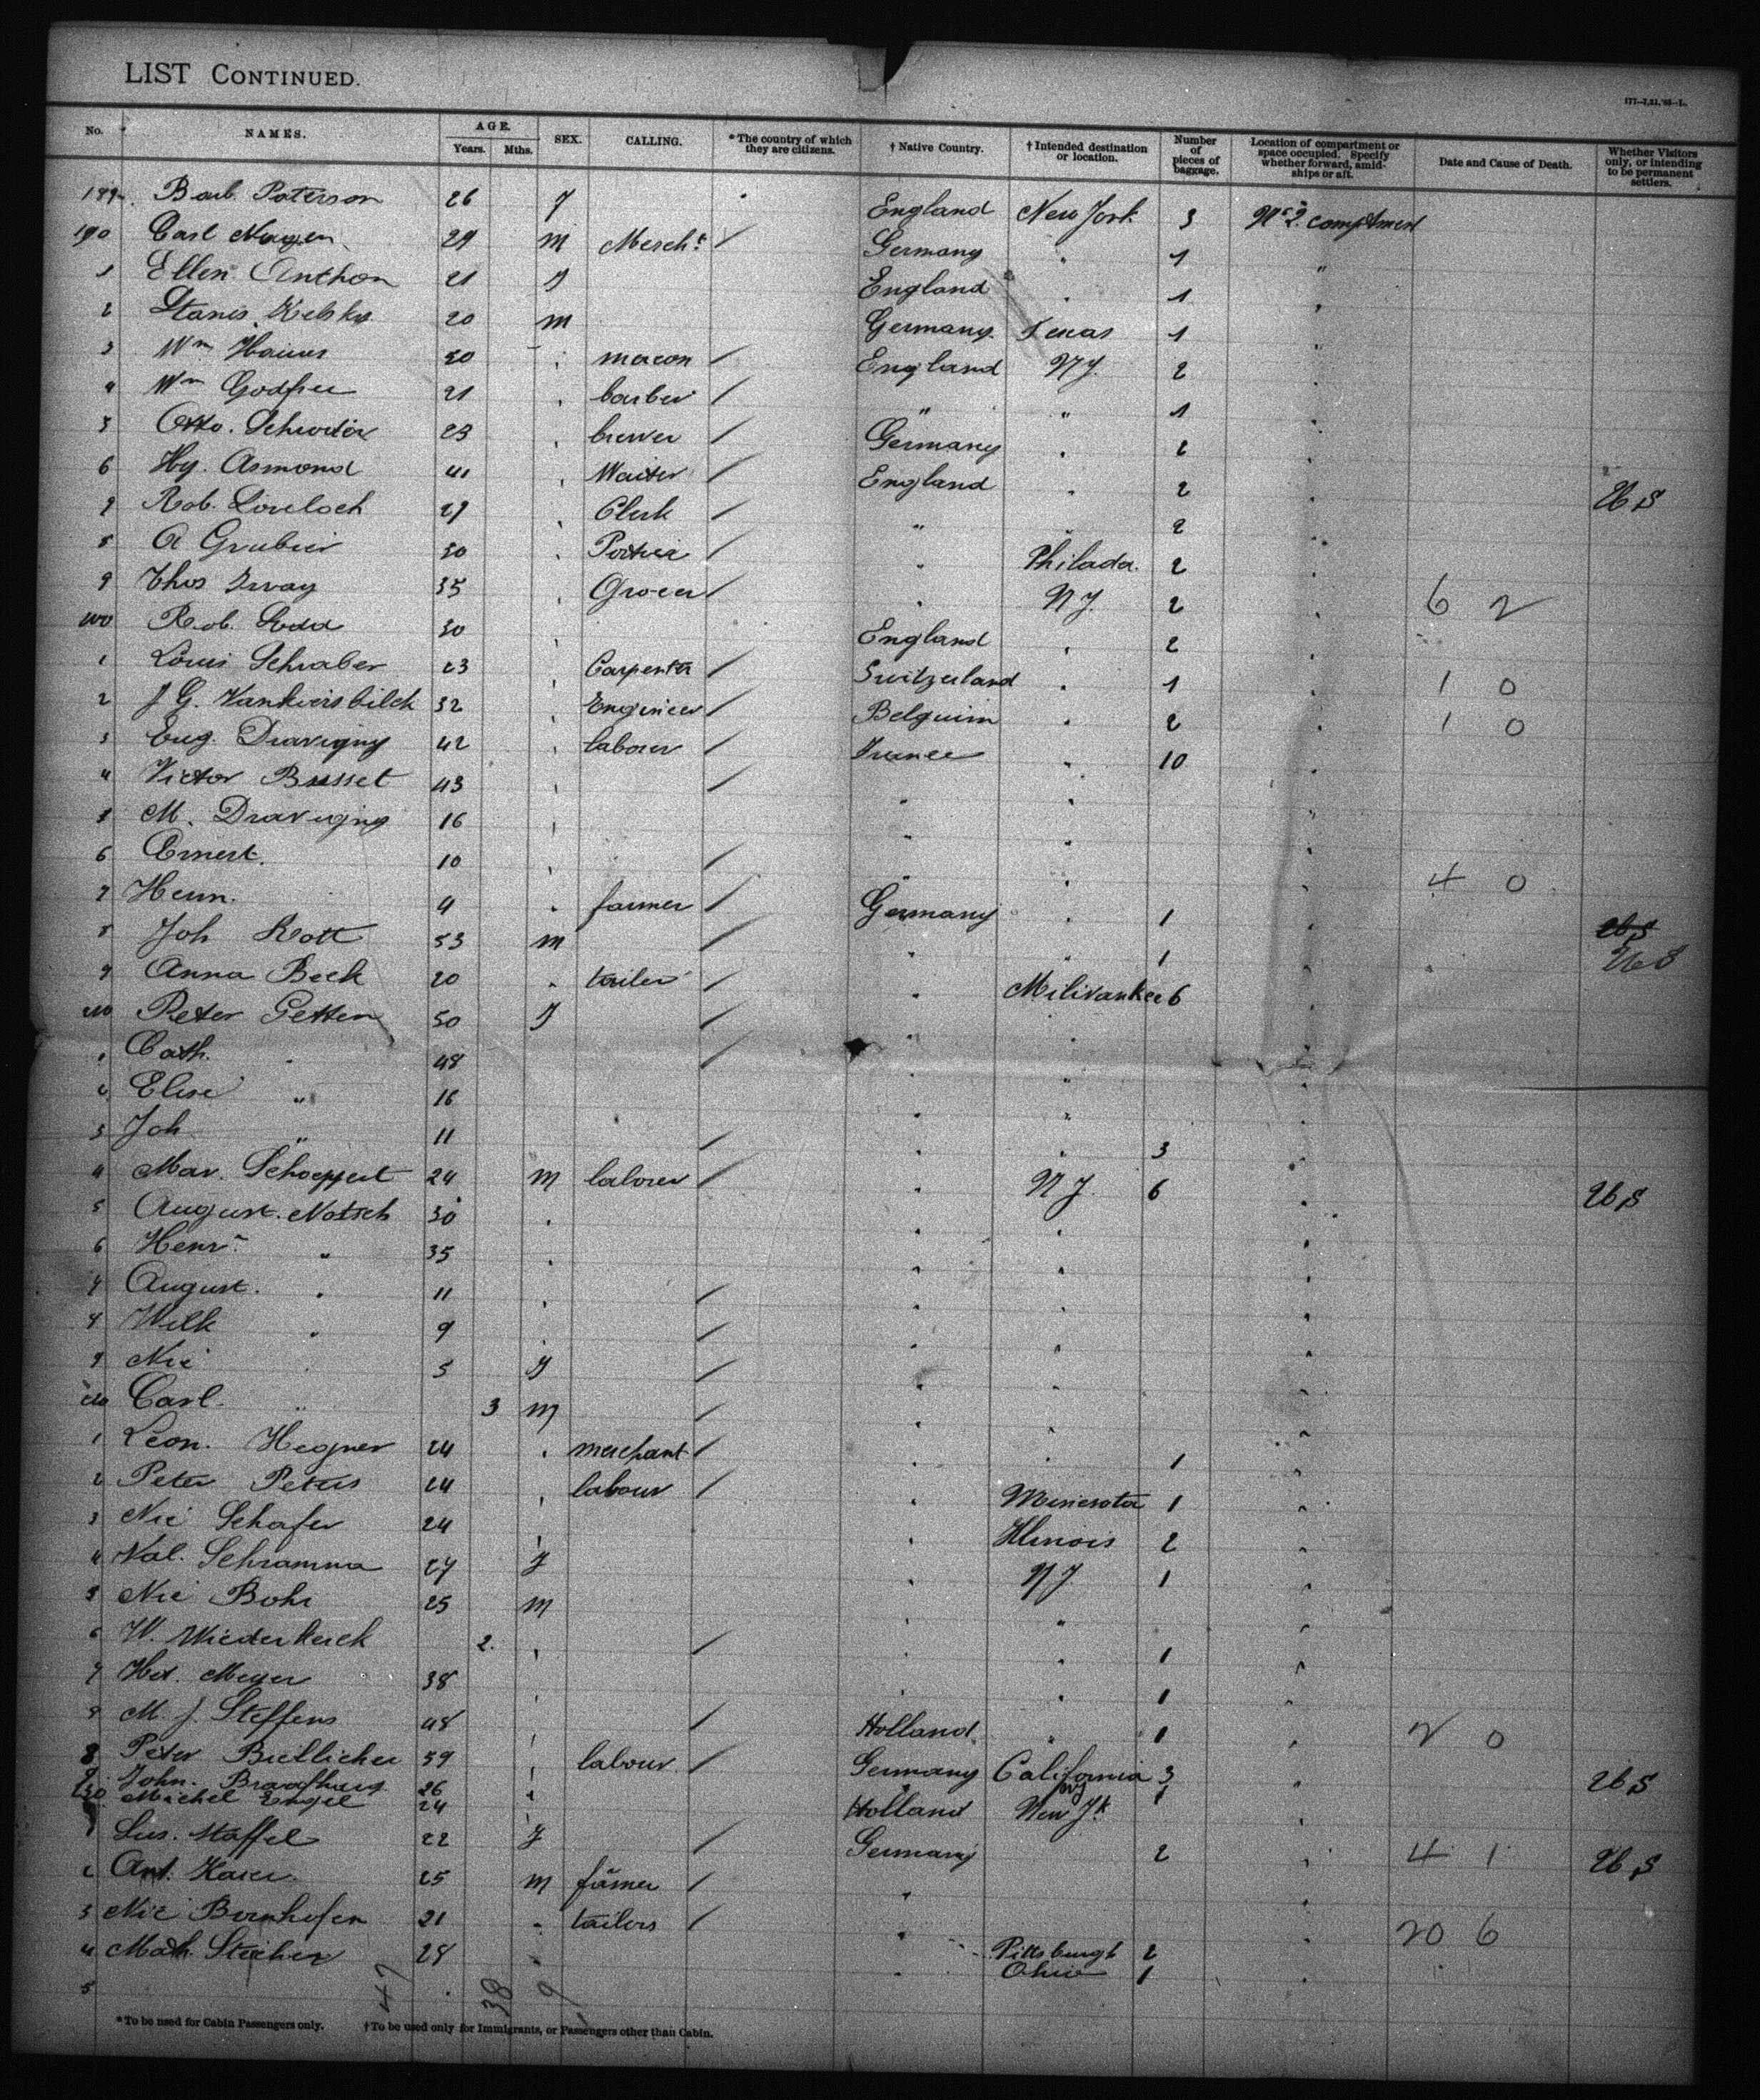 LIST CONTINUED.
177--7,21,'85--L.
No. NAMES. AGE. Years. Mths. SEX. CALLING. *The country of which they are citizens. †Native Country. †Intended destination or location. Number of pieces of baggage. Location of compartment or space occupied. Specify whether forward, amidships or aft. Date and Cause of Death. Whether Visitors only, or intending to be permanent settlers.
189 Barb. Paterson 26 f England New York 3 No 2. compartment
190 Carl 29 m Mercht / Germany " 1 "
1 Ellen Anthon 21 f England " 1 "
2 Stanis. 20 m Germany Texas 1 "
3 Wm 50 " macon / England NY. 2 "
4 Wm Godfree 21 " barber / " " 1 "
5 Otto. Schroder 23 " brewer / Germany " 2 "
6 Hy. Asmond 41 " Waiter / England " 2 "
7 Rob. Loveloch 29 " Clerk / " " 2 "
8 A Grubier 30 " / " Philada. 2 "
9 Thos 35 " Grocer / " NY. 2 " 6 2
200 Rob. 30 " England " 2 "
1 Louis Schraber 23 " Carpenter / Switzerland " 1 " 1 0
2 J G. Vankiersbilck 32 " Engineer / Belguim " 2 " 1 0
3 Eug. Dravigny 42 " labourer / France " 10 "
4 Victor Busset 43 " / " " "
5 M. Dravigny 16 " " " "
6 Ernest. 10 " / " " " 4 0
7 Herm. 9 " farmer / Germany " 1 "
8 Joh Kott 53 m / " " 1 "
9 Anna Beck 20 " tailer / " Milivankee 6 "
210 Peter Getten 50 f / " " "
1 Cath. " 48 / " " "
2 Elise " 16 " " "
3 Joh " 11 / " " 3 "
4 Mar. Schoeppert 24 m labourer / " NY. 6 "
5 August. Notsch 30 " " " "
6 Henr. " 35 " " " "
7 August. " 11 " / " " "
8 Wilh " 9 " / " " "
9 Nic " 5 f / " " "
220 Carl. " 3 m / " " "
1 Leon. Hegner 24 " merchant / " " 1 "
2 Peter Peters 24 " labour / " Minesota 1 "
3 Nic Schafer 24 " " Illinois 2 "
4 Val. Schramma 27 f " NY 1 "
5 Nic Bohr 25 m " " "
6 W. Wiederkerck 2. " / " " 1 "
7 Hd. Meyer 38 " " " 1 "
8 M. J. Steffens 48 " / Holland. " 1 " 2 0
8 Peter 59 " labour. / Germany California 3 "
9 John. 26 " " NY 1
230 Michel Engel 24 Holland New Yk. "
1 Sus. Staffel 22 f / Germany 2 " 4 1
2 Ant. 25 m farmer / " "
3 Nic Bornhofen 21 " tailors / " " 20 6
4 Math. 28 " Pittsburgh 2
5 " Ohio 1 "
47 38 9
*To be used for Cabin Passengers only. †To be used only for Immigrants, or Passengers other than Cabin.